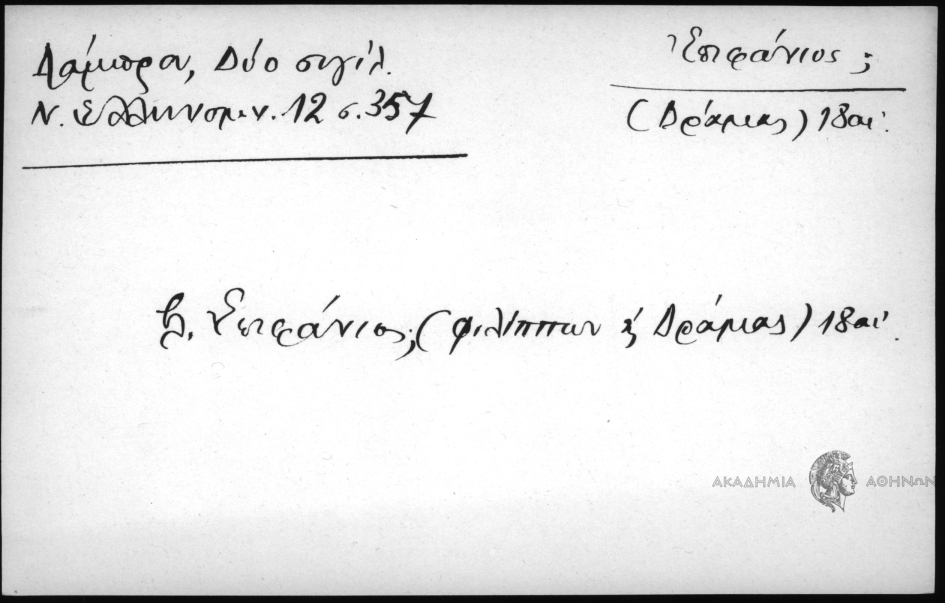 Λάμπρου, Δύο σιγίλ.
Ν. Ελληνομν. 12 σ. 357
Ἐπιφάνιος ;
(Δράμας) 18 αἰ.
βλ. Ἐπιφάνιος, (Φιλίππων & Δράμας) 18 αἰ.
ΑΚΑΔΗΜΙΑ ΑΘΗΝΩΝ